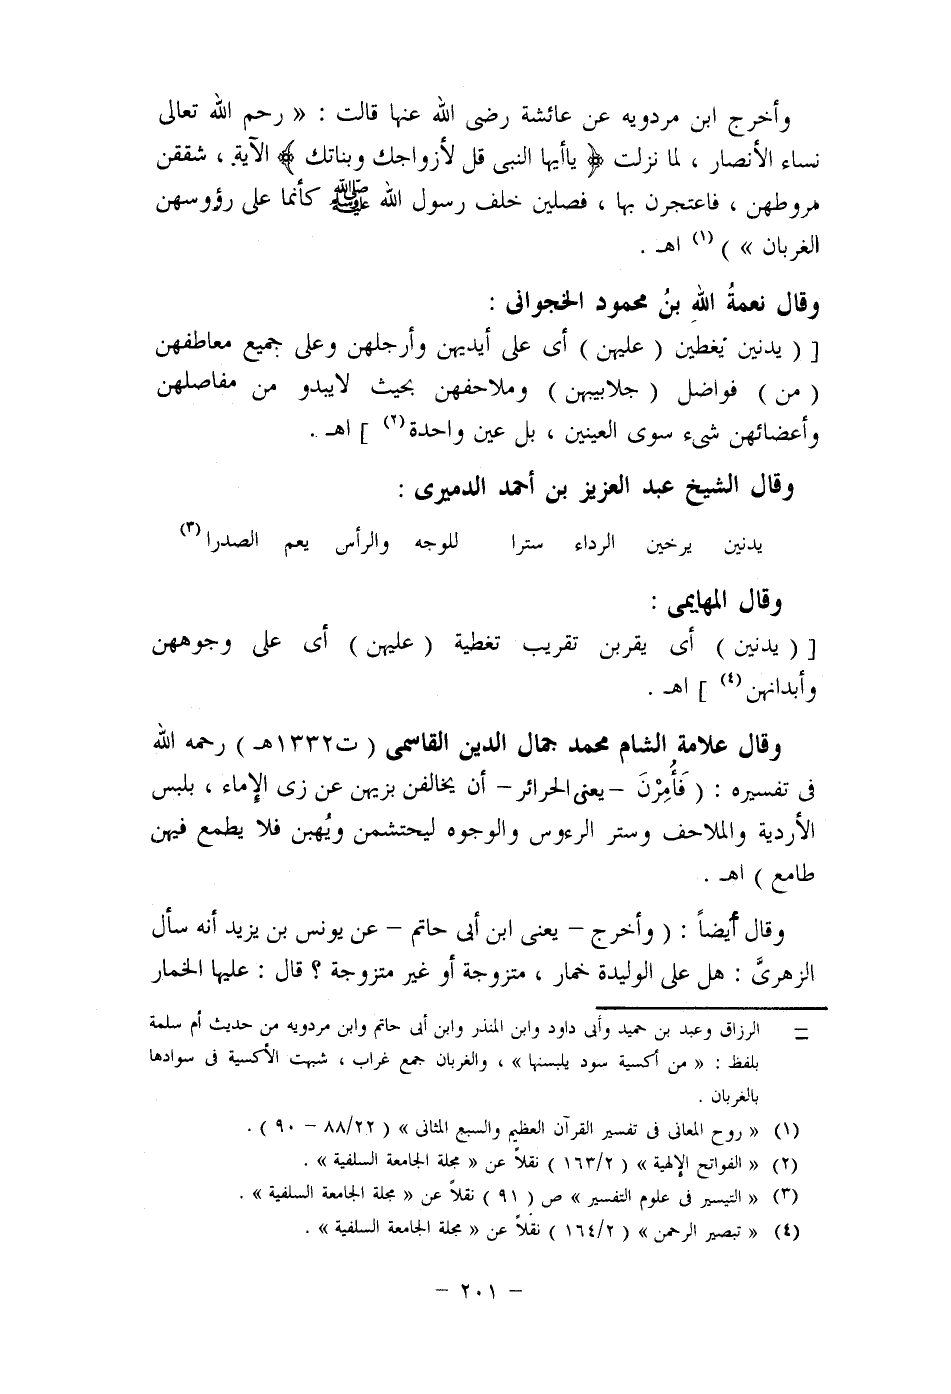 وأخرج ابن مردويه عن عائشة رضى الله عنها قالت : « رحم الله تعالى
نساء الأنصار ، لما نزلت ﴿ ياأيها النبى قل لأزواجك وبناتك ﴾ الآية ، شققن
مروطهن ، فاعتجرن بها ، فصلين خلف رسول الله ﷺ كأنما على رؤوسهن
الغربان » ) (١) اهـ .
وقال نعمةُ اللهِ بنُ محمود الخجوانى :
[ ( يدنين يُغطين ( عليهن ) أى على أيديهن وأرجلهن وعلى جميع معاطفهن
( من ) فواضل ( جلابيبهن ) وملاحفهن بحيث لايبدو من مفاصلهن
وأعضائهن شىء سوى العينين ، بل عين واحدة (٢) ] اهـ .
وقال الشيخ عبد العزيز بن أحمد الدميرى :
يدنين يرخين الرداء سترا للوجه والرأس يعم الصدرا (٣)
وقال المهايمى :
[ ( يدنين ) أى يقربن تقريب تغطية ( عليهن ) أى على وجوههن
وأبدانهن (٤) ] اهـ .
وقال علامة الشام محمد جمال الدين القاسمى ( ت١٣٣٢هـ ) رحمه الله
فى تفسيره : ( فَأُمِرْنَ – يعنى الحرائر – أن يخالفن بزيهن عن زى الإماء ، بلبس
الأردية والملاحف وستر الرءوس والوجوه ليحتشمن ويُهبن فلا يطمع فيهن
طامع ) اهـ .
وقال أيضاً : ( وأخرج – يعنى ابن أبى حاتم – عن يونس بن يزيد أنه سأل
الزهرىَّ : هل على الوليدة خمار ، متزوجة أو غير متزوجة ؟ قال : عليها الخمار
= الرزاق وعبد بن حميد وأبى داود وابن المنذر وابن أبى حاتم وابن مردويه من حديث أم سلمة
بلفظ : « من أكسية سود يلبسنها » ، والغربان جمع غراب ، شبهت الأكسية فى سوادها
بالغربان .
(١) « روح المعانى فى تفسير القرآن العظيم والسبع المثانى » ( ٢٢/٨٨ – ٩٠ ) .
(٢) « الفواتح الإلهية » ( ٢/١٦٣ ) نقلاً عن « مجلة الجامعة السلفية » .
(٣) « التيسير فى علوم التفسير » ص ( ٩١ ) نقلاً عن « مجلة الجامعة السلفية » .
(٤) « تبصير الرحمن » ( ٢/١٦٤ ) نقلاً عن « مجلة الجامعة السلفية » .
– ٢٠١ –